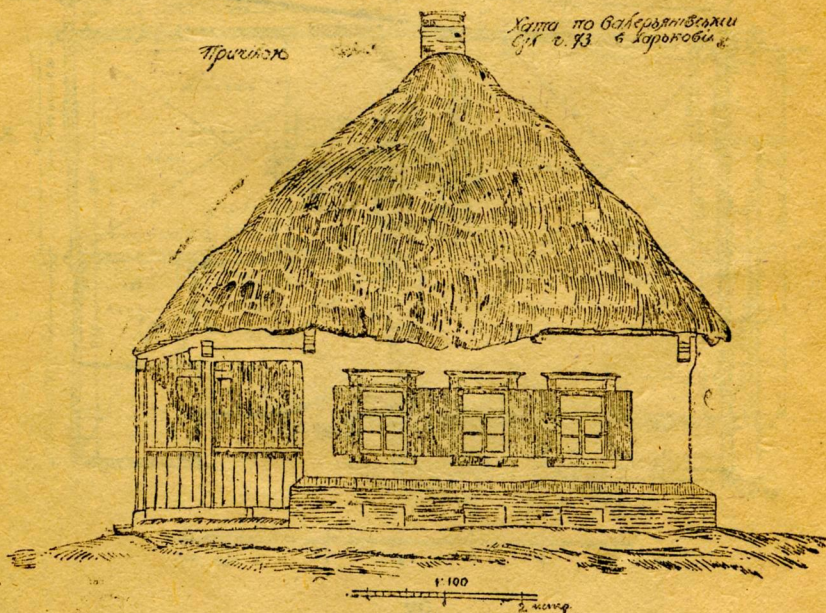 Причілок
Хата по Валерьянівській
вул. ч. 73 в Харькові
1:100
2 метр.